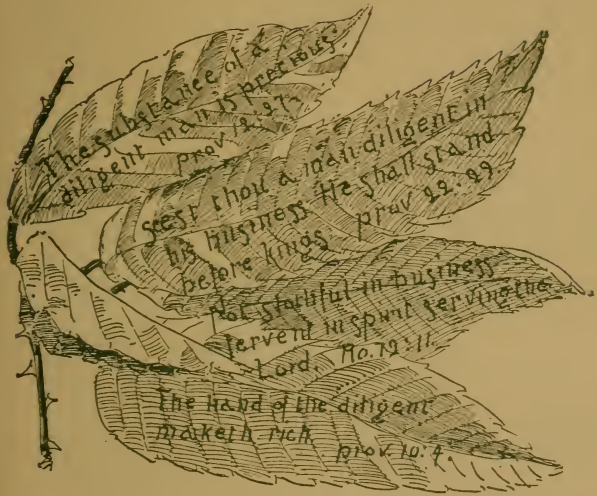 The substance of a
diligent man is precious.
prov 12:27
seest thou a man diligent in
his business He shall stand
before kings prov 22:29.
Not slothful in business
fervent in spirit serving the
Lord. Ro. 12:11.
The hand of the diligent
maketh rich.
prov. 10:4.